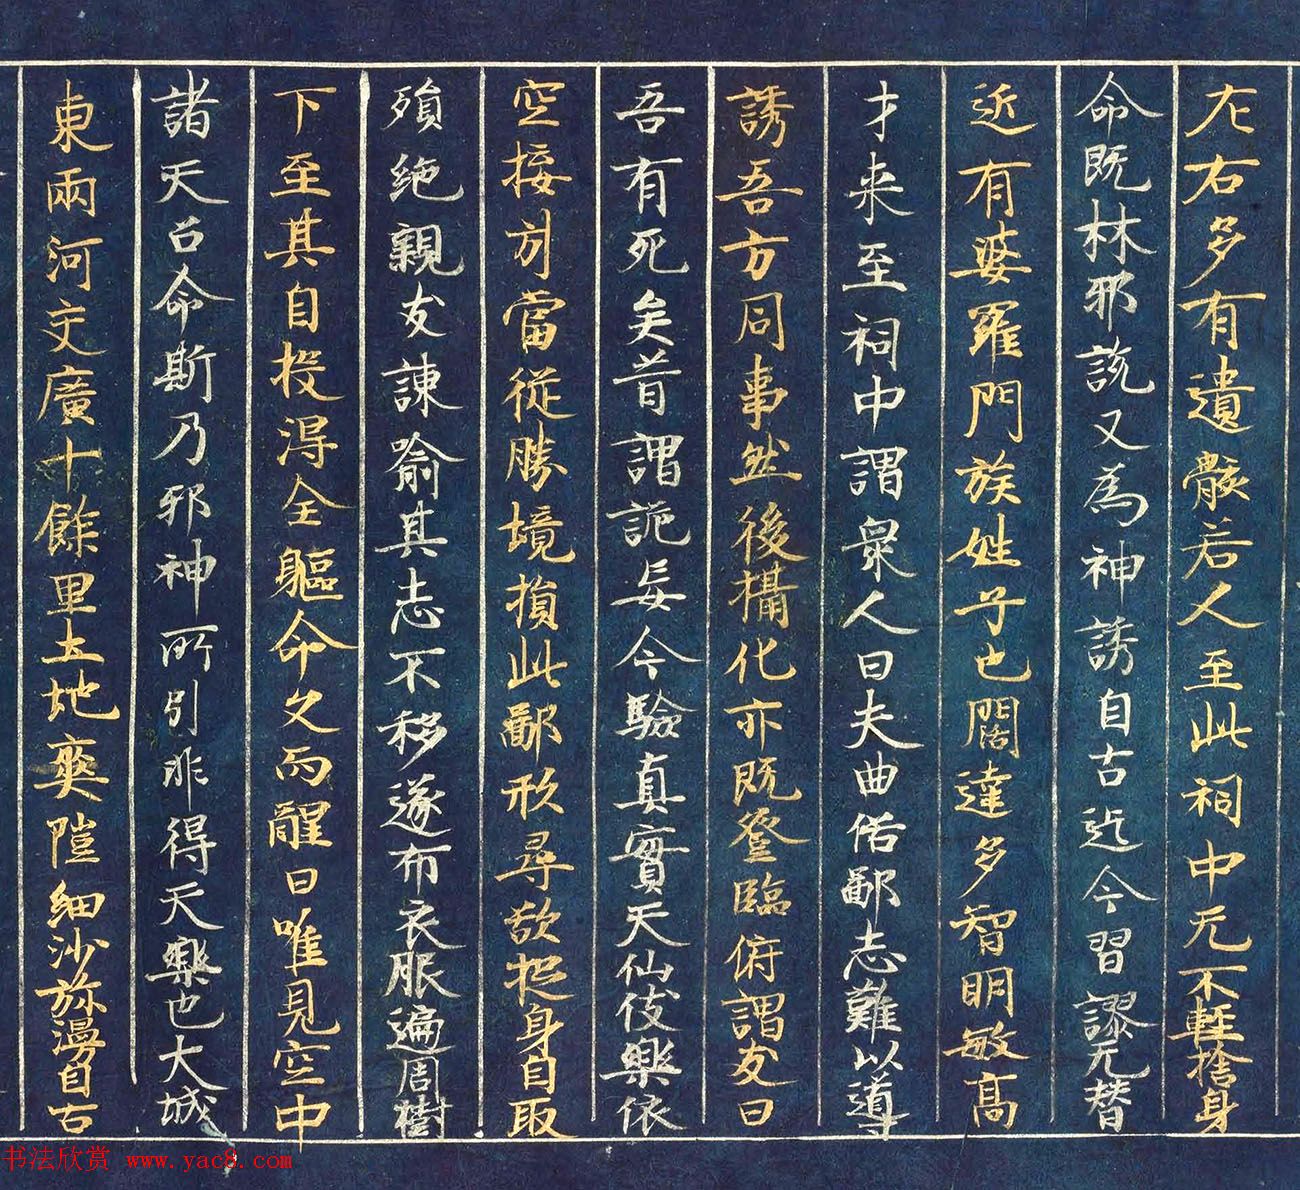 左右多有遺骸若人至此祠中无不輕捨身
命既怵邪說又為神誘自古迄今習謬无替
近有婆羅門族姓子也闊達多智明敏高
才来至祠中謂衆人曰夫曲俗鄙志難以導
誘吾方同事然後攝化亦既登臨俯謂友曰
吾有死矣昔謂詭妄今驗真實天仙伎樂依
空接引當從勝境損此鄙形尋欲投身自取
殞絶親友諫喻其志不移遂布衣服遍周樹
下至其自投得全軀命久而醒曰唯見空中
諸天召命斯乃邪神所引非得天樂也大城
東兩河交廣十餘里土地爽塏細沙弥漫自古
书法欣赏 www.yac8.com